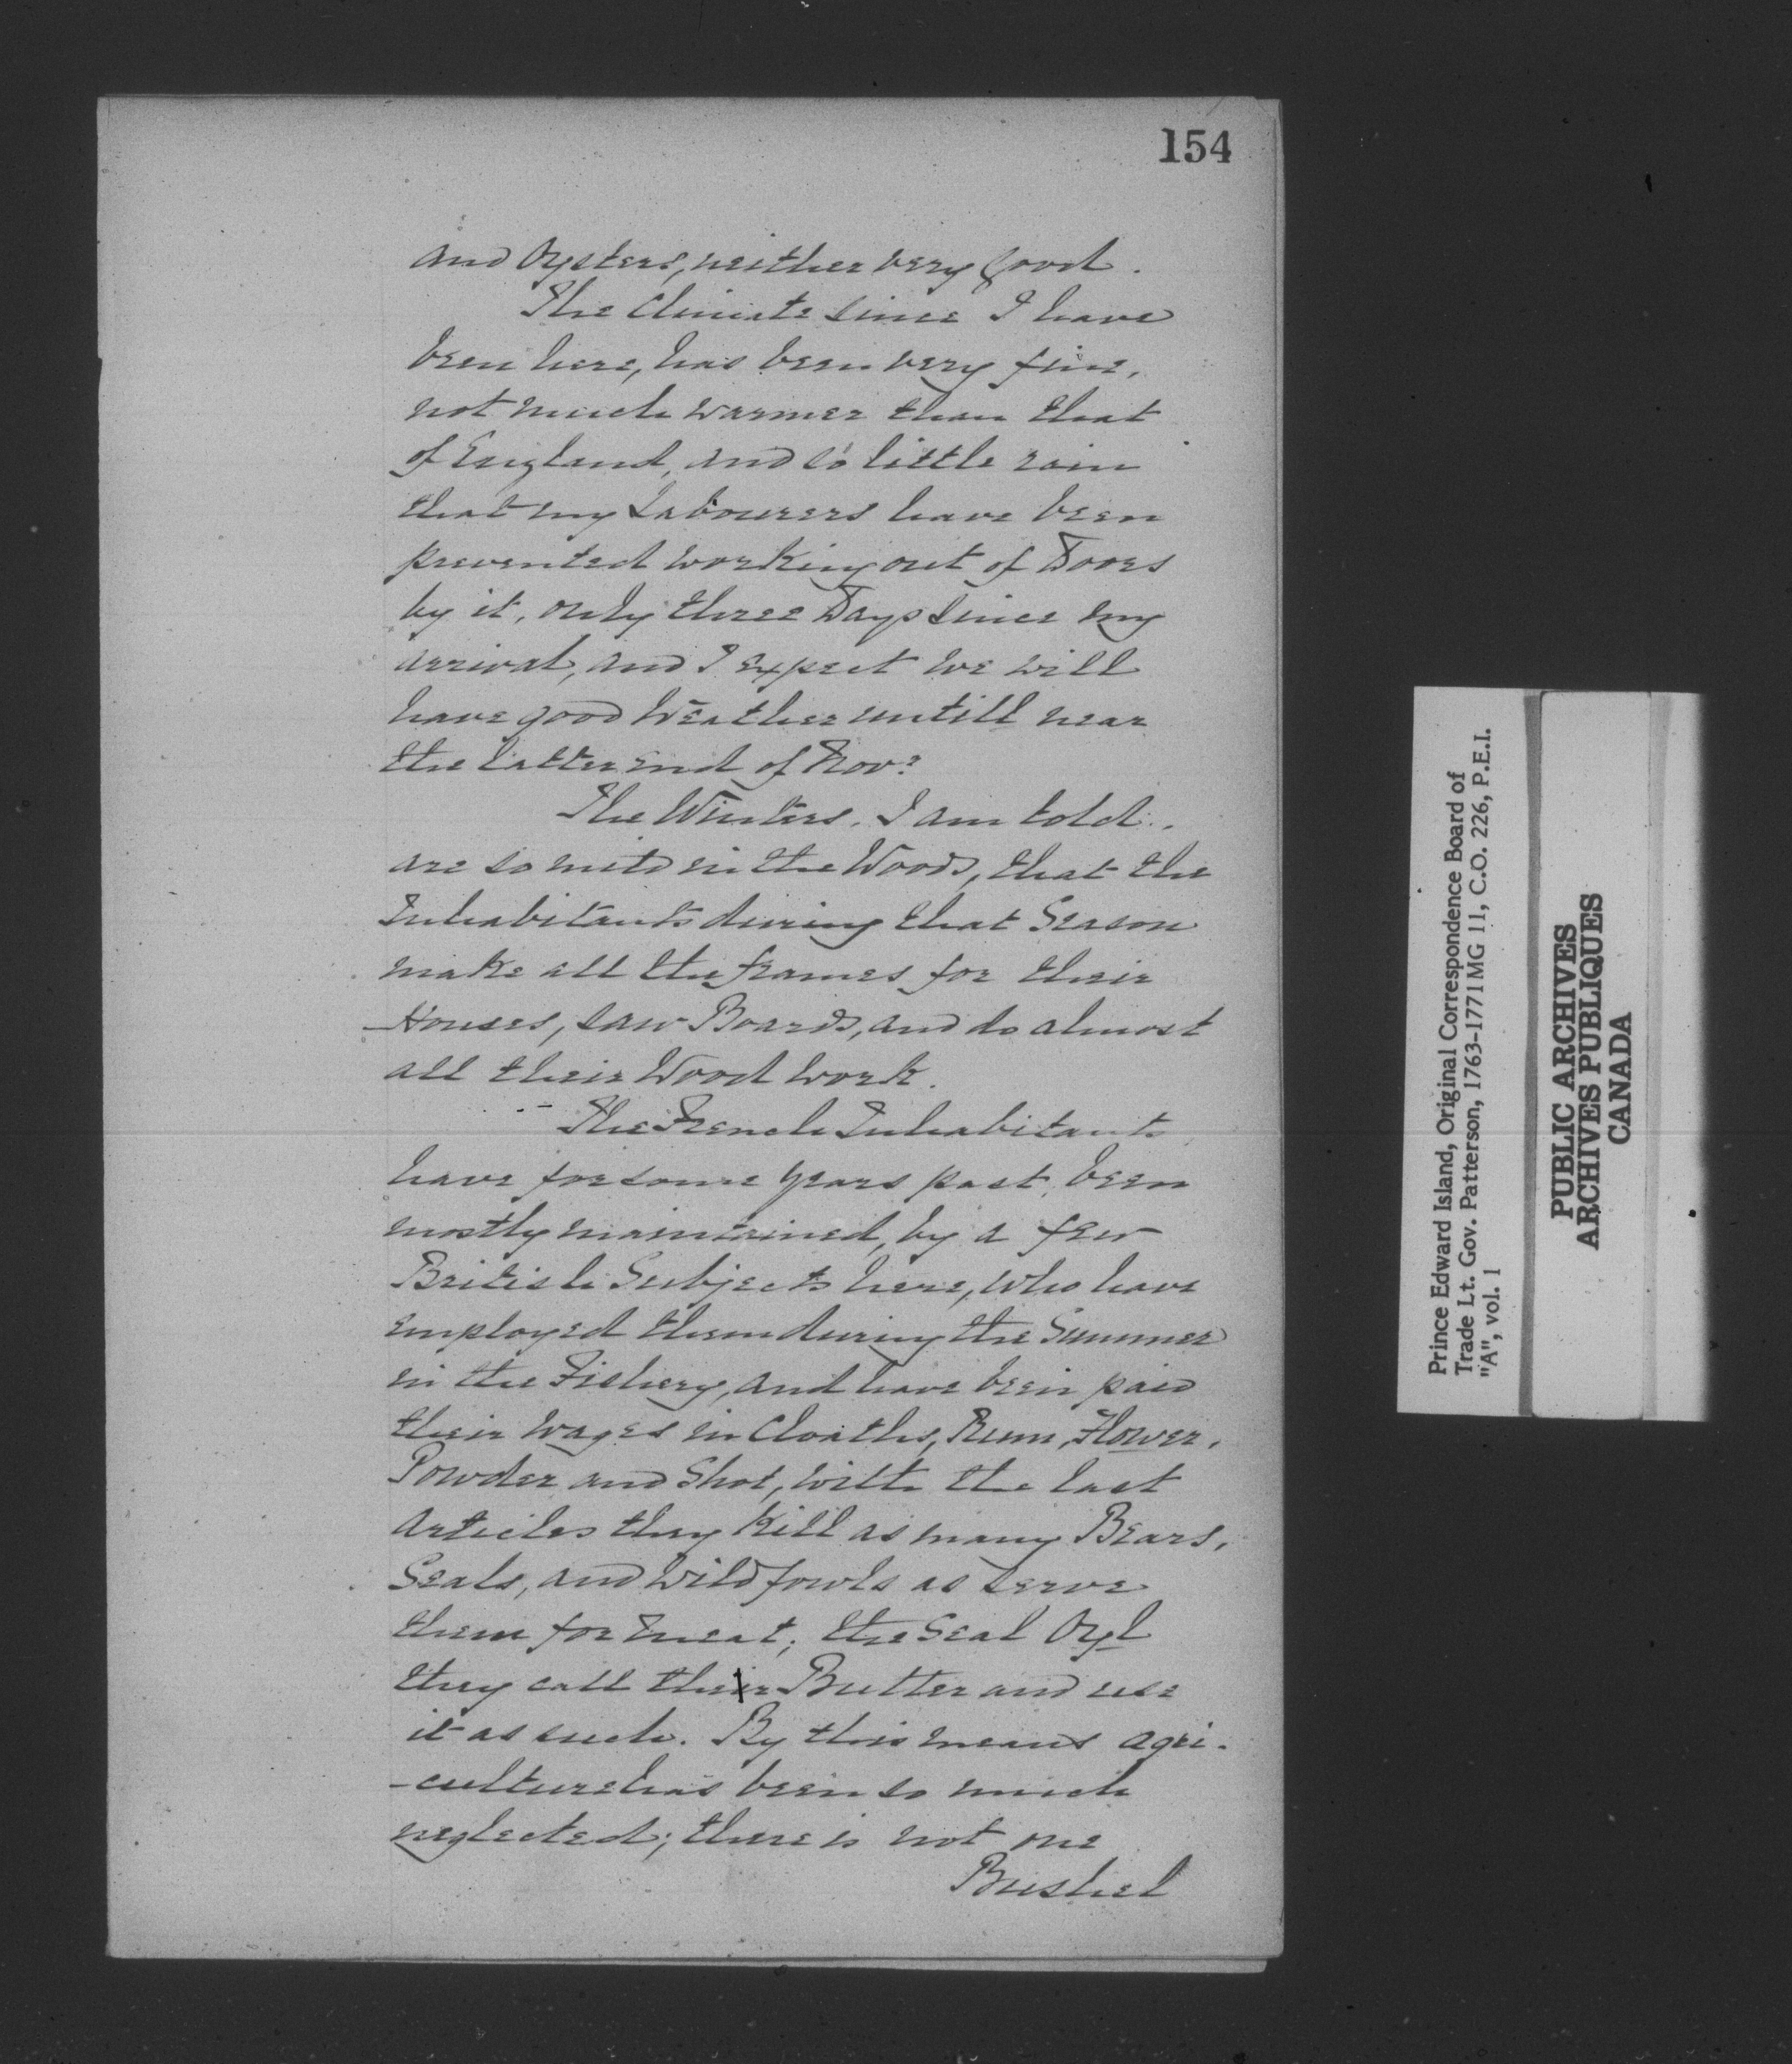 154
and Oysters, neither very good.
The Climate since I have
been here, has been very fine,
not much warmer than that
of England, and so little rain
that my Labourers have been
prevented working out of Doors
by it, only three Days since my
arrival, and I expect we will
have good Weather untill near
the latter end of Novr
The Winters, I am told,
are so mild in the Woods, that the
Inhabitants during that Season
make all the frames for their
Houses, saw Boards, and do almost
all their Wood work.
The French Inhabitants
have for some years past, been
mostly maintained, by a few
British Subjects here, who have
employed them during the Summer
in the Fishery, and have been paid
their wages in Cloaths, Rum, Flower,
Powder and Shot, with the last
Articles they kill as many Bears,
Seals, and wild fowls as serve
them for meat; the Seal Oyl
they call their Butter and use
it as such. By this means agri-
-culture has been so much
neglected; there is not one
Bushel
Prince Edward Island, Original Correspondence Board of
Trade Lt. Gov. Patterson, 1763-1771MG 11, C.O. 226, P.E.I.
"A", vol. 1
PUBLIC ARCHIVES
ARCHIVES PUBLIQUES
CANADA